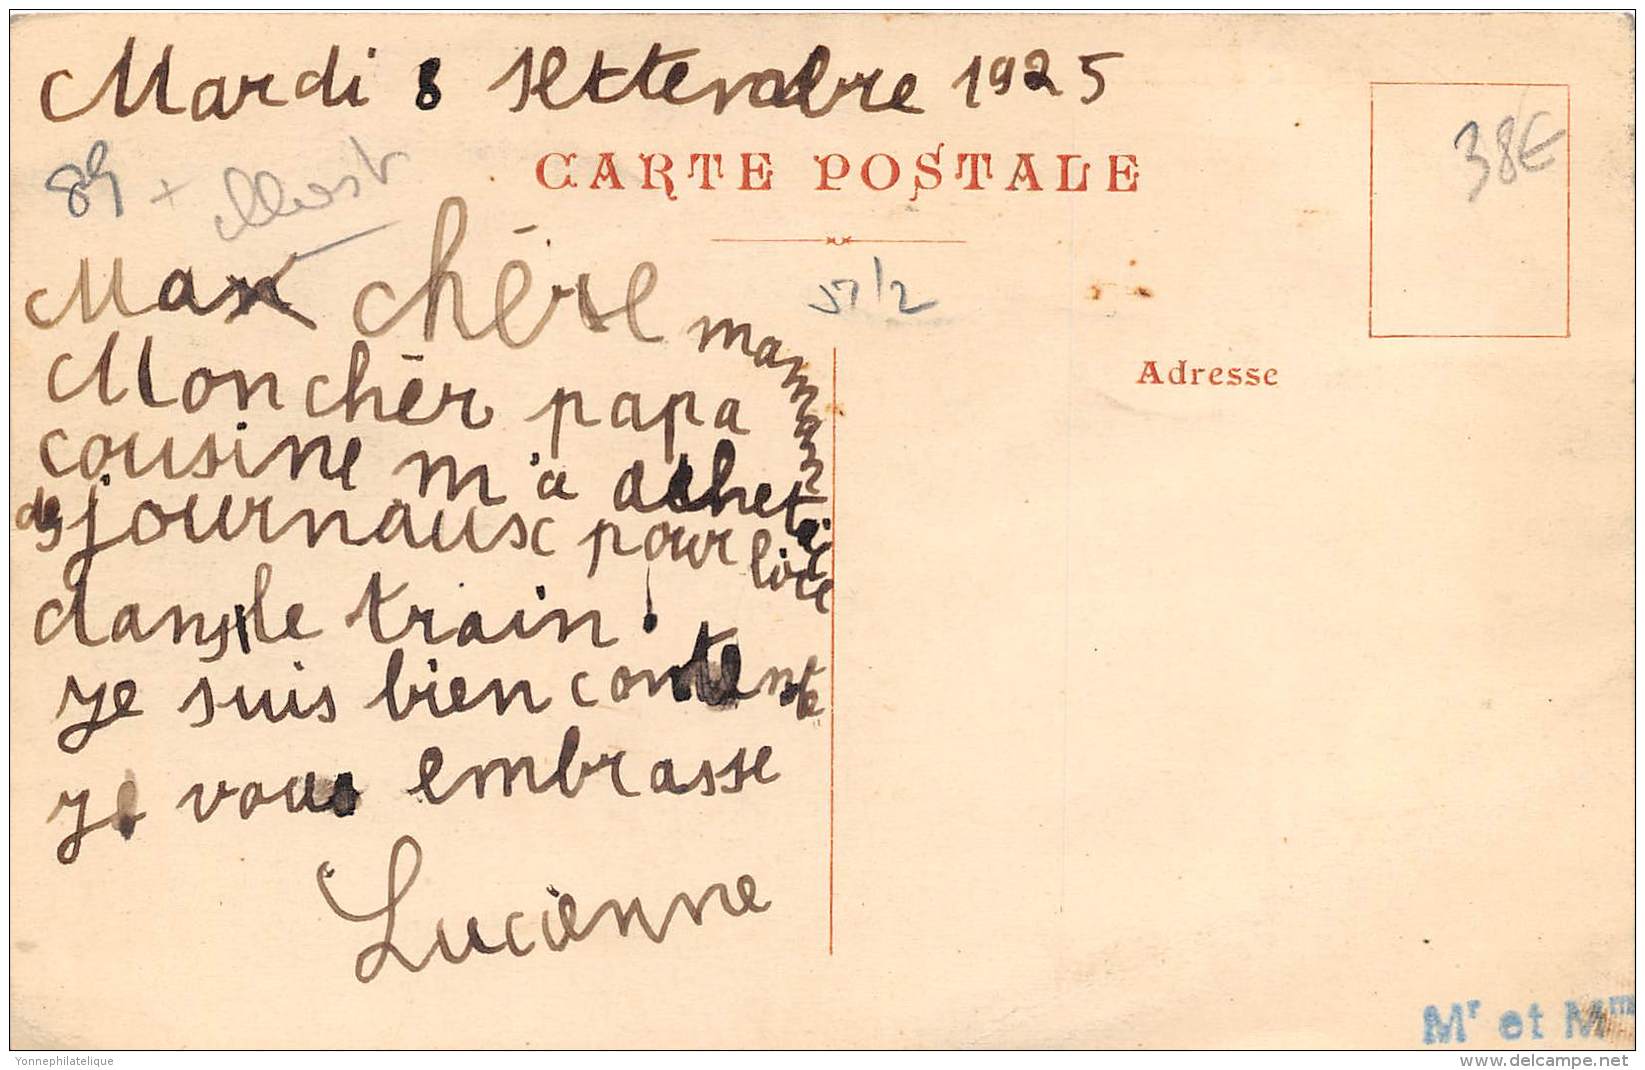 Mardi 8 settembre 1925
CARTE POSTALE
38€
89 +
Max chère maman
51/2
Mon chèr papa
Adresse
cousine m'a achetér
des journaux pour lire
dans le train !
Je suis bien contente
Je vous embrasse
Lucienne
Mr et Mm
Yonnephilatelique
www.delcampe.net